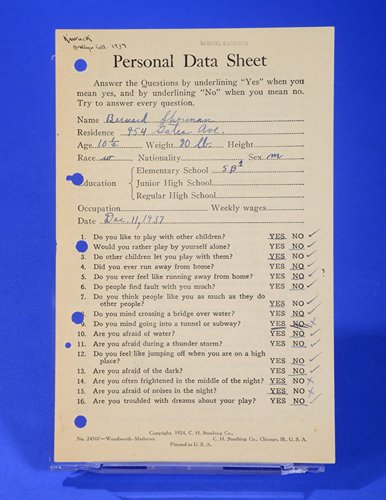 Karnack
Bklyn Coll. 1937
SAMUEL KAVRUCK
Personal Data Sheet
Answer the Questions by underlining "Yes" when you
mean yes, and by underlining "No" when you mean no.
Try to answer every question.
Name Bernard Sherman
Residence 954 Gates Ave.
Age 10½ Weight 80 lb. Height
Race w Nationality Sex m
Education
Elementary School 5B
Junior High School
Regular High School
Occupation Weekly wages
Date Dec. 11, 1937
1. Do you like to play with other children? YES NO
Would you rather play by yourself alone? YES NO
3. Do other children let you play with them? YES NO
4. Did you ever run away from home? YES NO
5. Do you ever feel like running away from home? YES NO
6. Do people find fault with you much? YES NO
7. Do you think people like you as much as they do
other people? YES NO
8. Do you mind crossing a bridge over water? YES NO
9. Do you mind going into a tunnel or subway? YES NO
10. Are you afraid of water? YES NO
11. Are you afraid during a thunder storm? YES NO
12. Do you feel like jumping off when you are on a high
place? YES NO
13. Are you afraid of the dark? YES NO
14. Are you often frightened in the middle of the night? YES NO
15. Are you afraid of noises in the night? YES NO
16. Are you troubled with dreams about your play? YES NO
Copyright, 1924, C. H. Stoelting Co.,
No. 24987—Woodworth-Mathews. C. H. Stoelting Co., Chicago, Ill., U. S. A.
Printed in U. S. A.